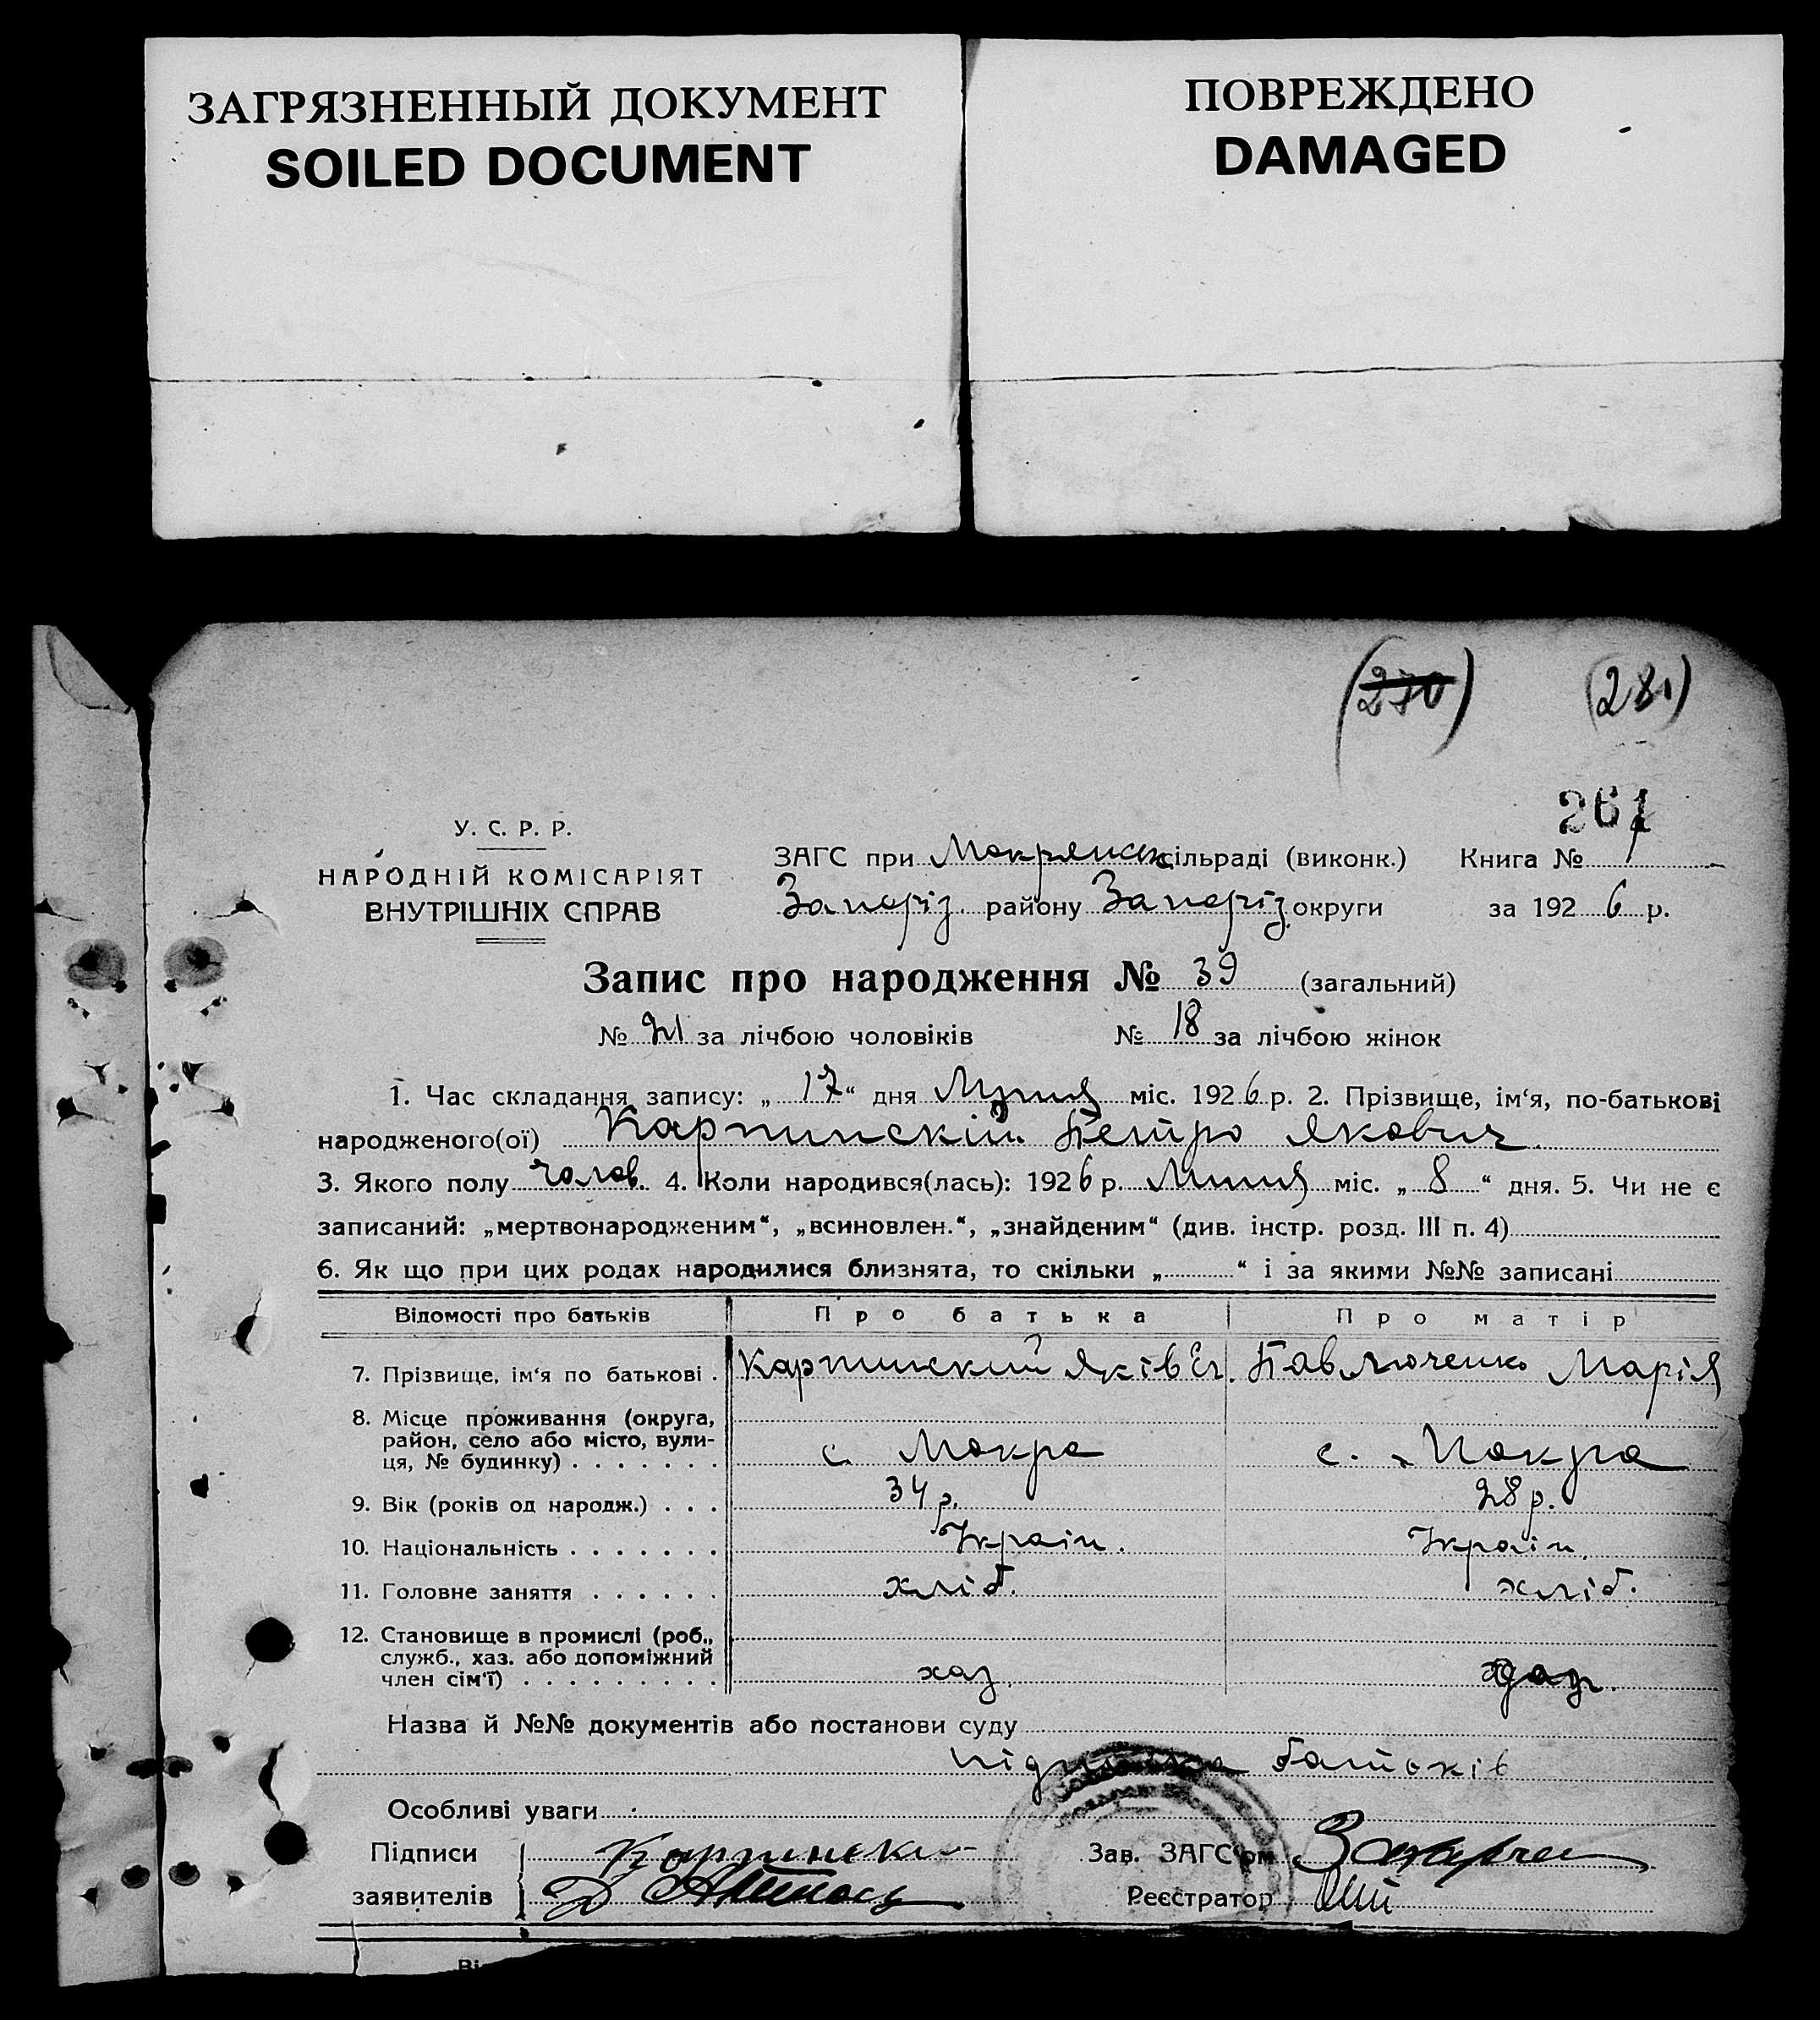 ЗАГРЯЗНЕННЫЙ ДОКУМЕНТ
SOILED DOCUMENT
ПОВРЕЖДЕНО
DAMAGED
(270) (281)
261
У. С. Р. Р.
НАРОДНІЙ КОМІСАРІЯТ
ВНУТРІШНІХ СПРАВ
ЗАГС при Мокрянск сільраді (виконк.) Книга №
Запоріз. району Запоріз. округи за 1926 р.
Запис про народження № 39 (загальний)
№ 21 за лічбою чоловіків № 18 за лічбою жінок
1. Час складання запису: „ 17 “ дня міс. 1926 р. 2. Прізвище, ім‘я, по-батькові
народженого(ої) Карпинскій Петро Якович
3. Якого полу чолов. 4. Коли народився(лась): 1926 р. міс. „ 8 “ дня. 5. Чи не є
записаний: „мертвонародженим“, „всиновлен.“, „знайденим“ (див. інстр. розд. III п. 4)
6. Як що при цих родах народилися близнята, то скільки „ “ і за якими №№ записані
Відомості про батьків Про батька Про матір
7. Прізвище, ім‘я по батькові . Карпинский Яків Павлюченко Марія
8. Місце проживання (округа,
район, село або місто, вули-
ця, № будинку) . . . . . . . с. Мокра с. Мокра
9. Вік (років од народж.) . . . 34 р. 28 р.
10. Національність . . . . . . . Україн. Україн.
11. Головне заняття . . . . . . хліб. хліб.
12. Становище в промислі (роб.,
служб., хаз. або допоміжний
член сім‘ї) . . . . . . . . . хаз.
Назва й №№ документів або постанови суду
підписка батьків
Особливі уваги
Підписи Карпински Зав. ЗАГС‘ом
заявителів Реєстратор
Ві